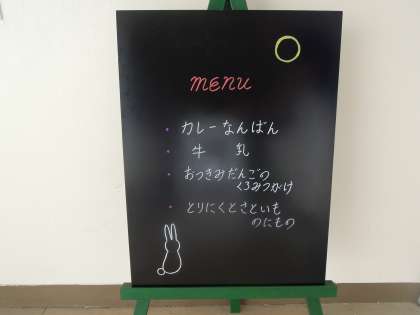 MENU
・カレーなんばん
・牛 乳
・おつきみだんごの
くろみつかけ
・とりにくとさといも
のにもの